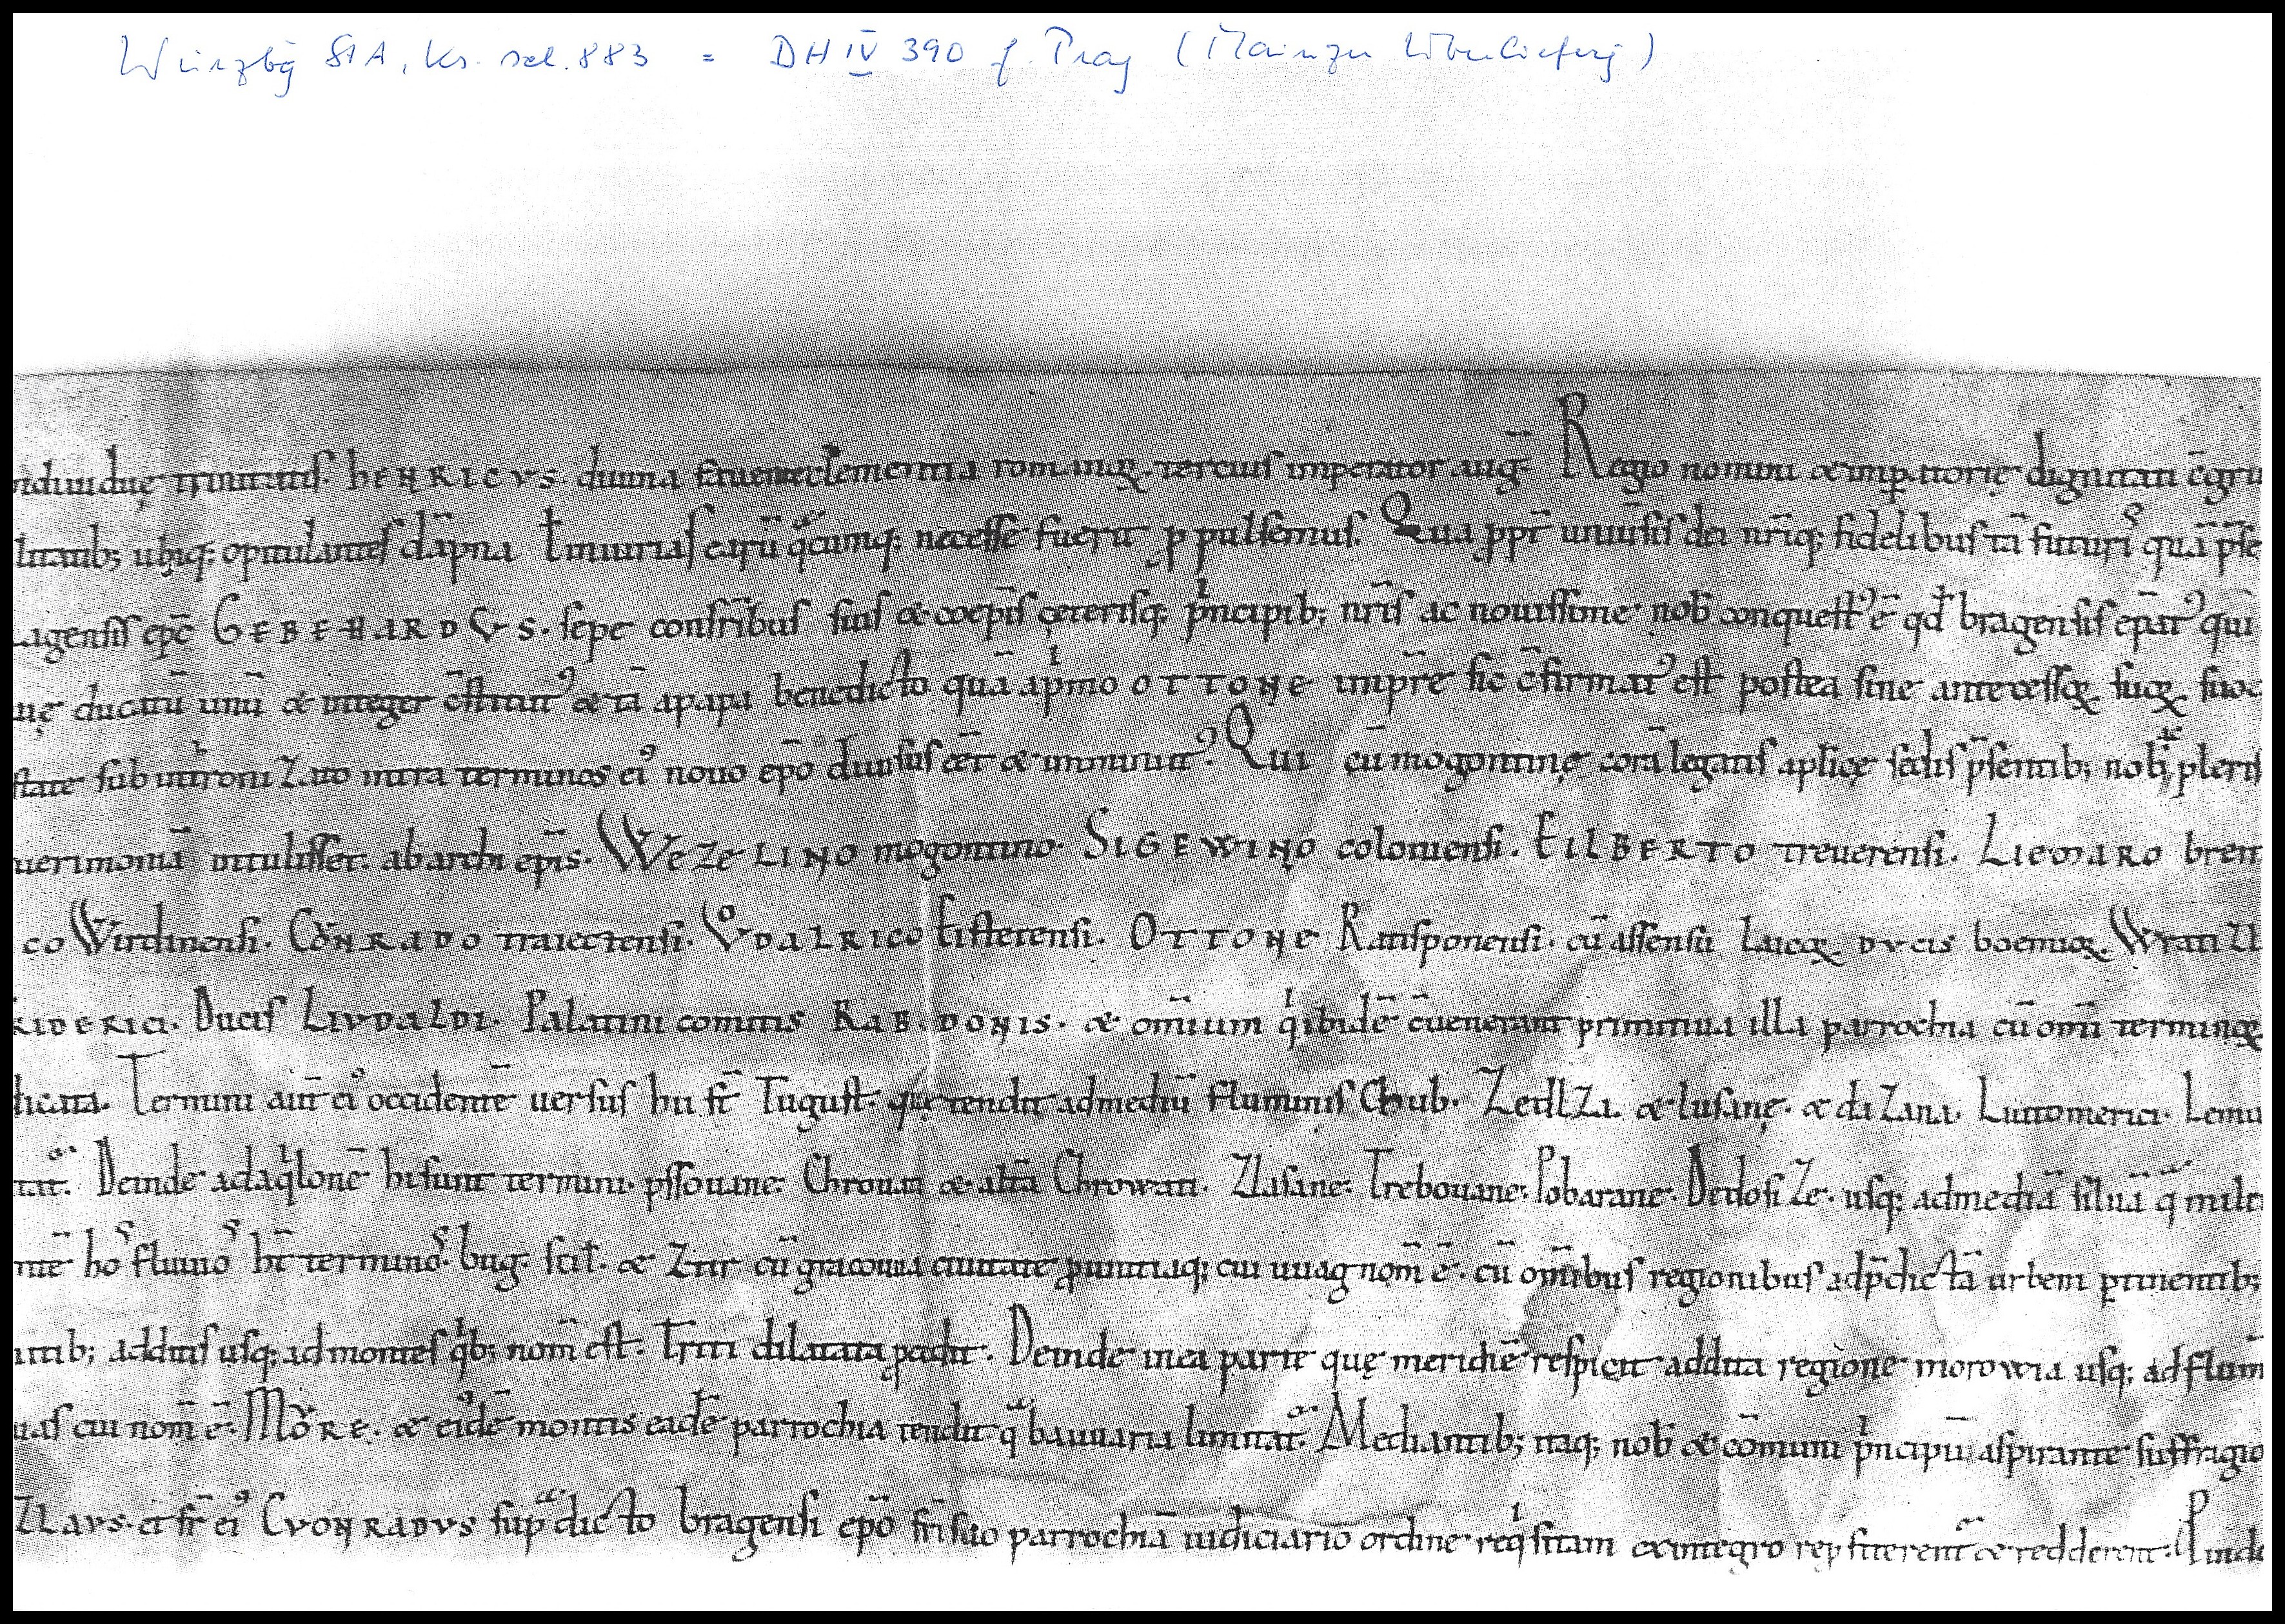 Würzbg StA, Ks. sel. 883 = DH IV 390 f. Prag (Mainzer Überlieferg)
iduuiduę trinitatis. HENRICVS. diuina clementia romanoꝝ tercius imperator aug̅. Regio nomini & imp̲atorię dignitati c̅gru
litatib; ubiq; opitulantes da̅pna ł iniurias earu̅ qcumq; necesse fuerit p̱pulsemus. Qua p̱pt̅ uniu̅sis dei nr̅iq; fidelibus ta̅ futuris qua̅ p̅se
agensis ep̅c GEBEHARDVS. sepe confr̅ibus suis & coep̅is ceterisq; pⁱncipib; nr̅is ac nouissime nob̅ conquestꝰ e̅ qd̅ bragensis ep̅atꝰ qui
nę ducatu̅ unu̅ & integer c̅stitutꝰ & ta̅ a papa benedicto qua̅ a pⁱmo OTTONE imp̅re sic c̅firmatꝰ est postea sine antecessoꝝ suoꝝ suoq
state sub intronizato intra terminos eiꝰ nouo ep̅o diuisus e̅et & imminutꝰ. Qui cu̅ mogontinę cora̅ legatis ap̅licę sedis p̅sentib; nob̅ pleris
uerimonia̅ intulisset. ab archiep̅is. WEZELINO mogontino. SIGEWINO coloniensi. EILBERTO treuerensi. LIEMARO brem
co Wirdinensi. CoNRADO traiectensi. VͦDALRICO Eistetensi. OTTONE Ratisponensi. cu̅ assensu laicoꝝ DVCIS boemioꝝ. Wratizl
RIDERICI. Ducis LIVDALDI. Palatini comitis RABBODONIS. & om̅ium qⁱ ibide̅ c̅uenerant primitiua illa parrochia cu̅ om̅i terminoꝝ
licata. Termini aut̅ eiꝰ occidente̅ uersus hii st̅ Tugust. quę tendit ad mediu̅ fluminis Chub. Zedlza. & lusane. & daZana. Liutomerici. Lemu
tatᵃ. Deinde ad aqⁱlone̅ hi sunt termini. pssouane. Chrouati & alt̅a Chrowati. Zlasane. Trebouane. Pobarane. Dedosize. usq; ad media̅ silua̅ qᵃ mile
nte̅ hoˢ fluuioˢ ht̅ terminoˢ. bug. scil̅. & Ztir cu̅ gracoua ciuitate p̱uintiaq; cui uuag nom̅ e̅. cu̅ om̅ibus regionibus ad p̅dicta̅ urbem p̲tinentib;
ntib; additis usq; ad montes qⁱb; nom̅ est. Tritri dilatata p̱cedit. Deinde in ea parte quę meridie̅ respicit addita regione morowia usq; ad flum̅
uas cui nom̅ e̅. MoͮRE. & eiꝰde̅ montis ead̅e parrochia tendit qᵃ bauuaria limitatᵃ. Mediantib; itaq; nob̅ & co̅muni pⁱncipu̅ aspirante suffragio
ZLAVS. et fr̅ eiꝰ CVONRADVS supᵃdicto bragensi ep̅o fr̅i suo parrochia̅ iudiciario ordine reqⁱsitam ex integro rep̲fiterentᵃ & redderent. Pinde